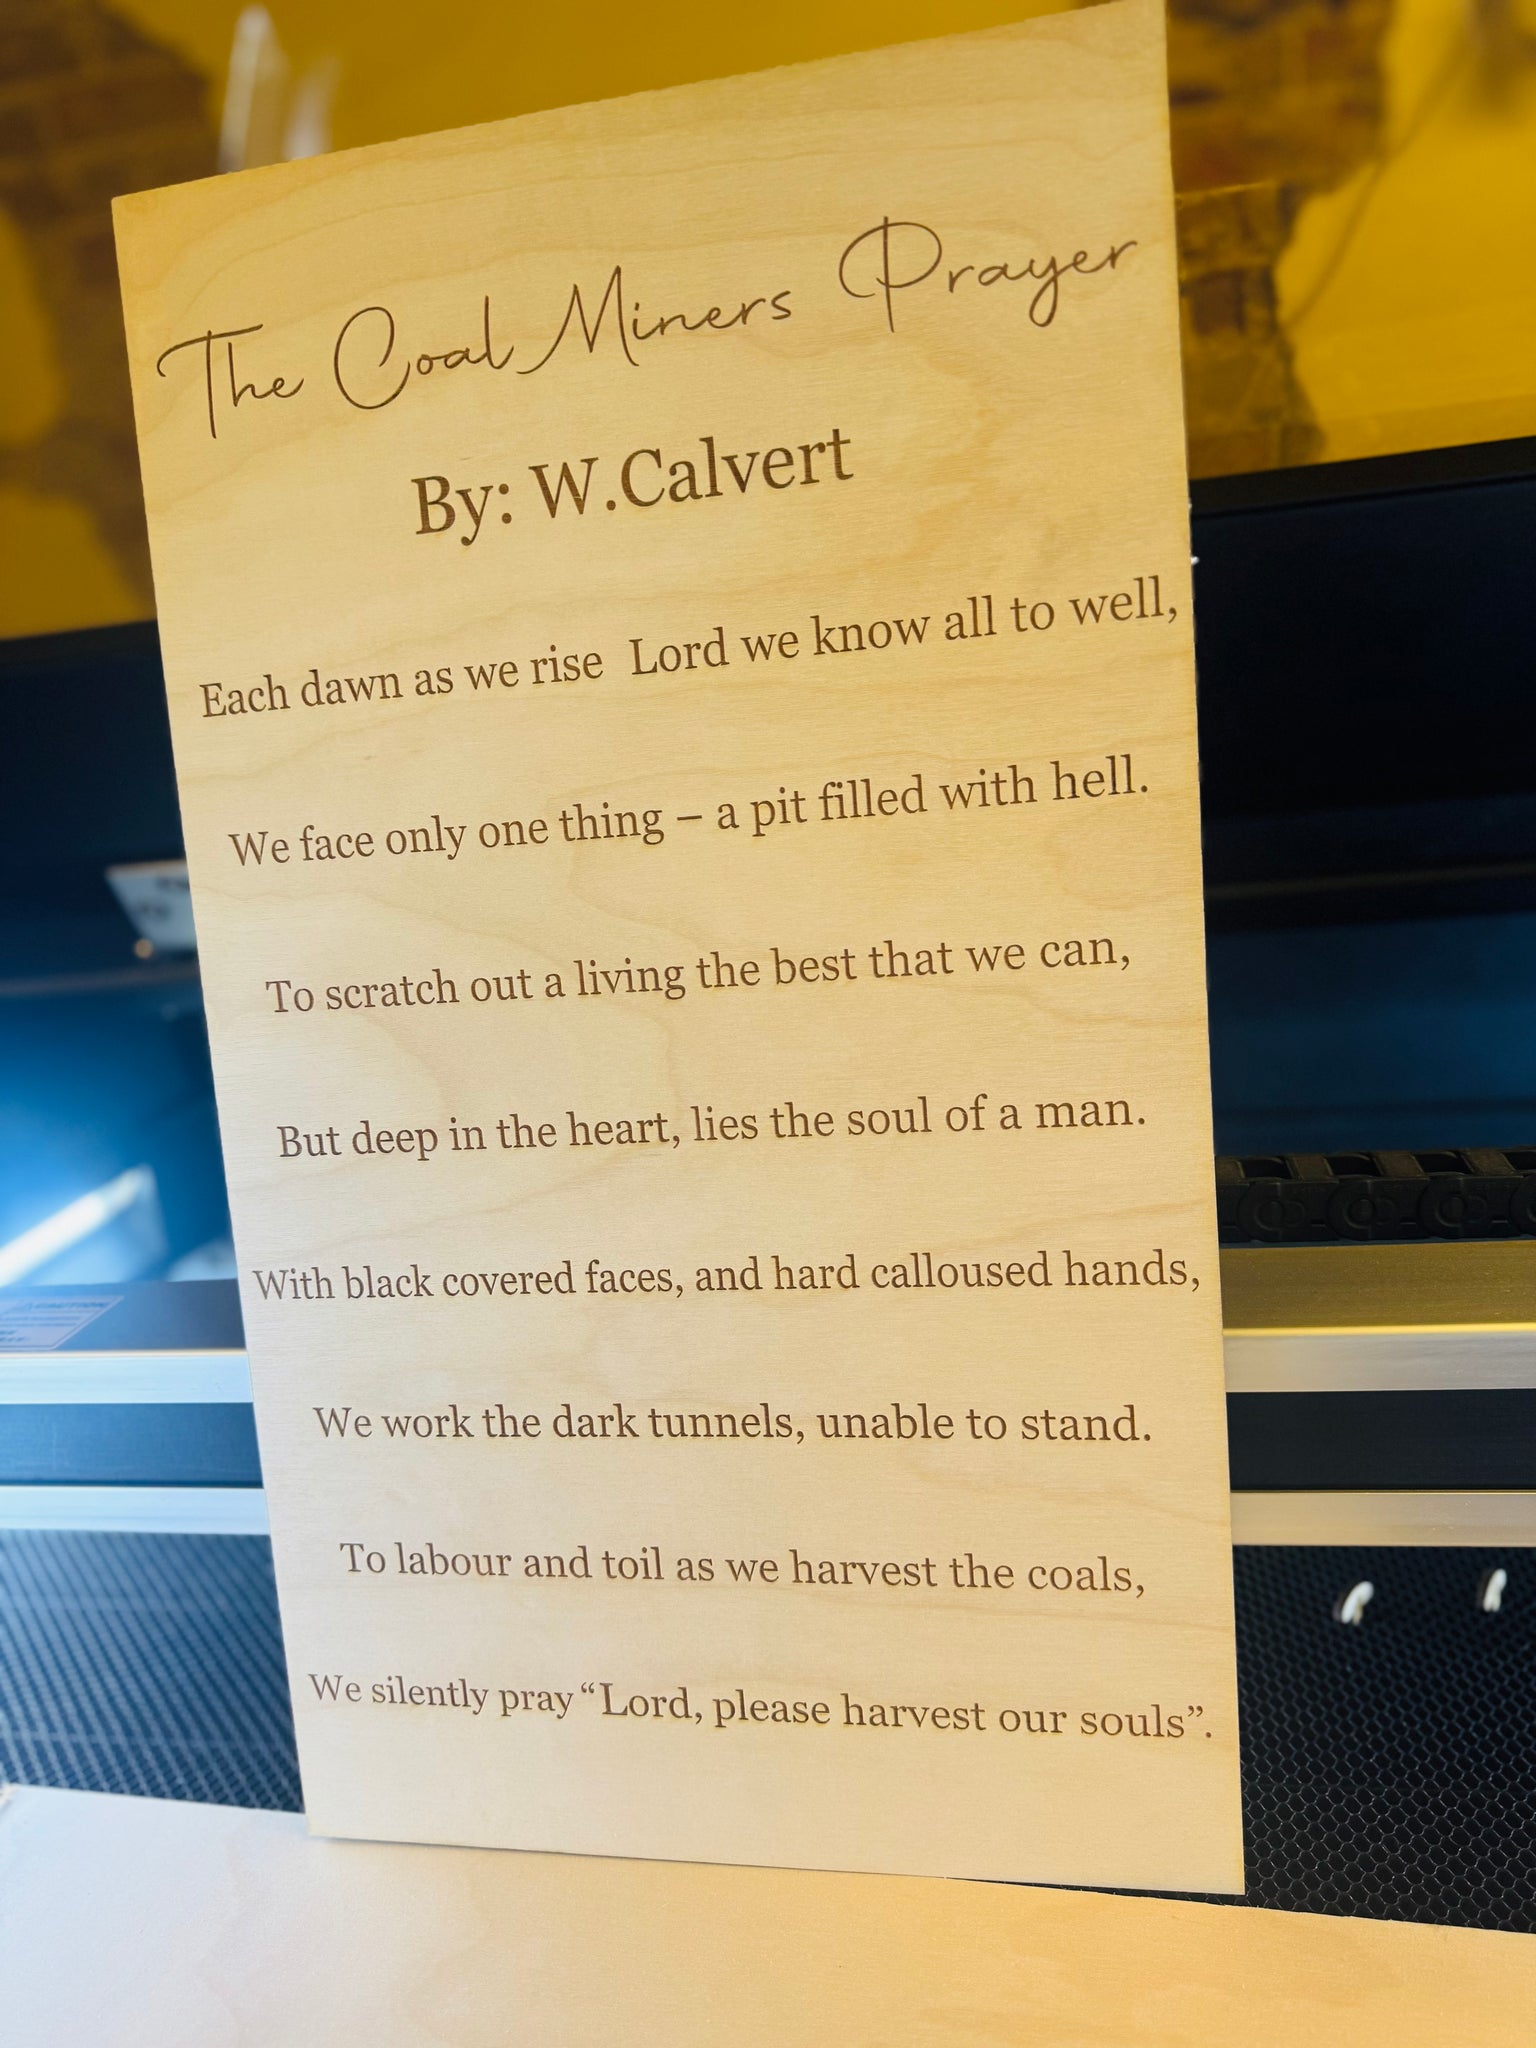 The Coal Miners Prayer
By: W.Calvert
Each dawn as we rise  Lord we know all to well,
We face only one thing – a pit filled with hell.
To scratch out a living the best that we can,
But deep in the heart, lies the soul of a man.
With black covered faces, and hard calloused hands,
We work the dark tunnels, unable to stand.
To labour and toil as we harvest the coals,
We silently pray “Lord, please harvest our souls”.
CAUTION